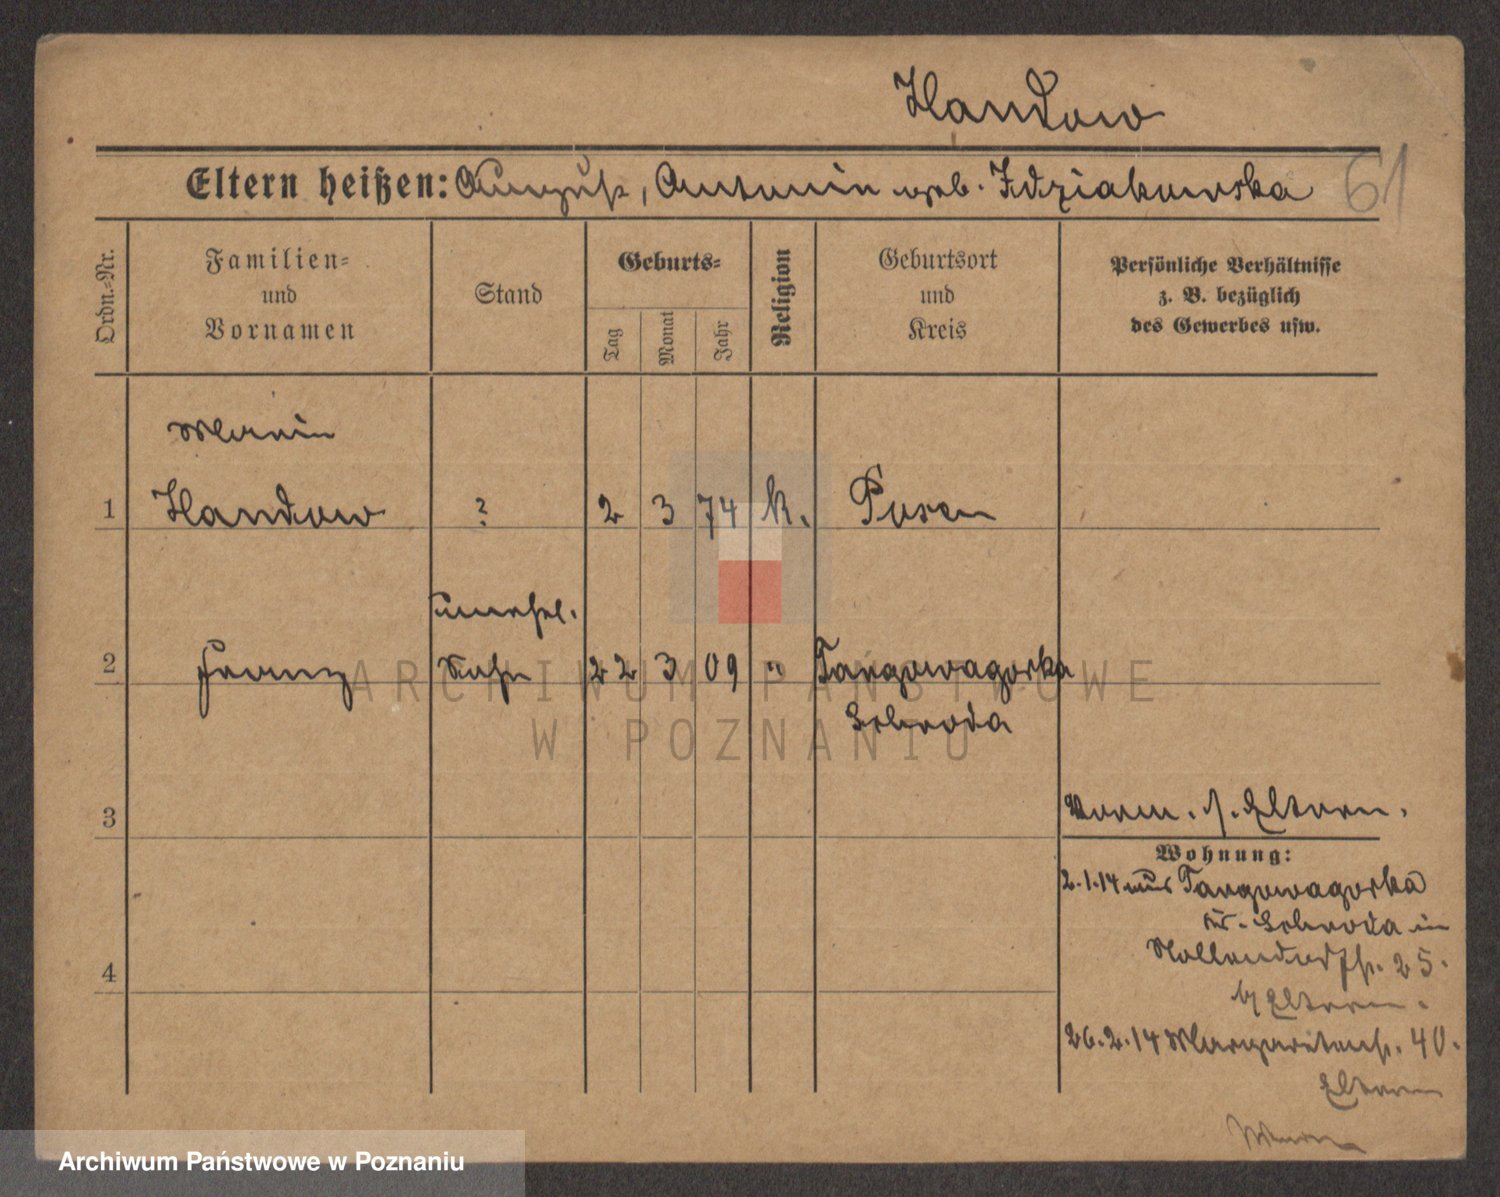 Handow
61
Eltern heißen: August, Antonin geb. Idziakowska
Ordn.-Nr.
Familien-
und
Vornamen
Stand
Geburts-
Tag
Monat
Jahr
Religion
Geburtsort
und
Kreis
Persönliche Verhältnisse
z. B. bezüglich
des Gewerbes usw.
Maria
1 Handow ? 2 3 74 k. Posen
unehel.
2 Franz Sohn 22 3 09 " Targowagorka
Schroda
3
Vorm. s. Eltern.
Wohnung:
2.1.14 aus Targowagorka
Kr. Schroda in
Nollendorfstr. 25.
b/ Eltern.
4
26.2.14 Margaretenstr. 40.
Eltern
ARCHIWUM PAŃSTWOWE
W POZNANIU
Archiwum Państwowe w Poznaniu